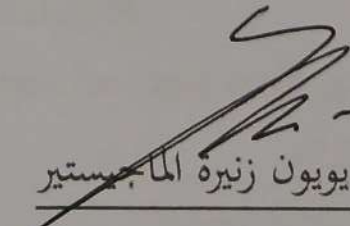 يويون زنيرة الماجيستير